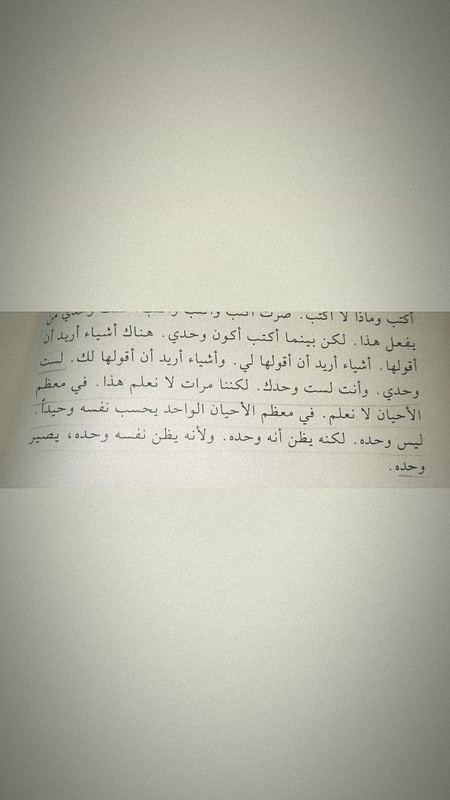 أكتب وماذا لا أكتب. صرت أكتب وأكتب وحدي من
يفعل هذا. لكن بينما أكتب أكون وحدي. هناك أشياء أريد أن
أقولها. أشياء أريد أن أقولها لي. وأشياء أريد أن أقولها لك. لست
وحدي. وأنت لست وحدك. لكننا مرات لا نعلم هذا. في معظم
الأحيان لا نعلم. في معظم الأحيان الواحد يحسب نفسه وحيداً.
ليس وحده. لكنه يظن أنه وحده. ولأنه يظن نفسه وحده، يصير
وحده.